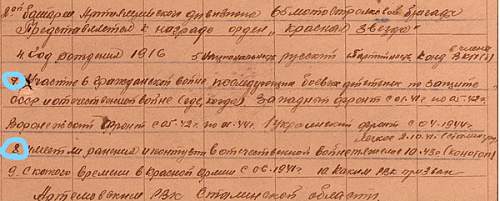 2ой батареи Артиллерийского дивизиона 65 мотострелковой бригады
Представляется к награде орден "Красная Звезда"
4. Год рождения 1916 5 национальность русский 6 партийность Канд. в члены ВКП(б)
7. Участие в гражданской войне, последующих боевых действиях по защите
СССР и отечественной войне (где, когда) Западный фронт с 01.41г. по 05.42г.
Воронежский фронт с 05.42г. по 01.44г. 1 Украинский фронт с 04.1944г.
легкое 2.10.41
8. имеет ли ранения и контузии в отечественной войне тяжелое 10.43г.
9. С какого времени в Красной армии с 06.1941г. 10 Каким РВК призван
Артемовским РВК Сталинской области.